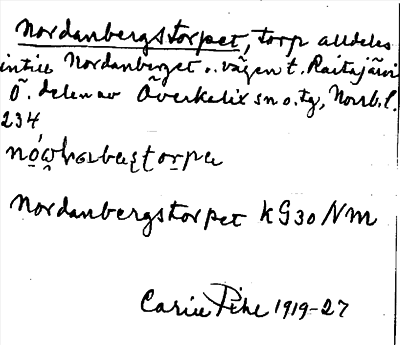 Nordanbergstorpet, torp alldeles
intill Nordanberget o. vägen t. Raitajärvi
Ö. delen av Överkalix sn o. tg, Norrb. l.
234
Nordanbergstorpet KG30 Nm
Carin Pihl 1919-27